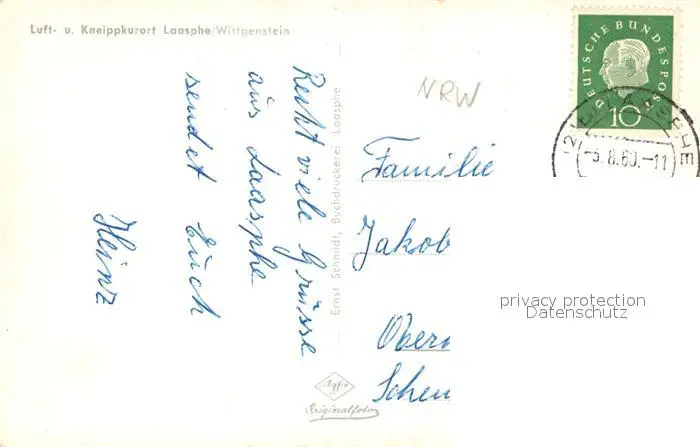 Luft- u. Kneippkurort Laasphe/Wittgenstein
Recht viele Grüsse
aus Laasphe
sendet Euch
Heinz
Ernst Schmidt, Buchdruckerei Laasphe
Agfa
Originalfoto
NRW
Familie
Jakob
Obern
Schen
DEUTSCHE BUNDESPOST
10
LAASPHE
-3.8.60.-11
privacy protection
Datenschutz